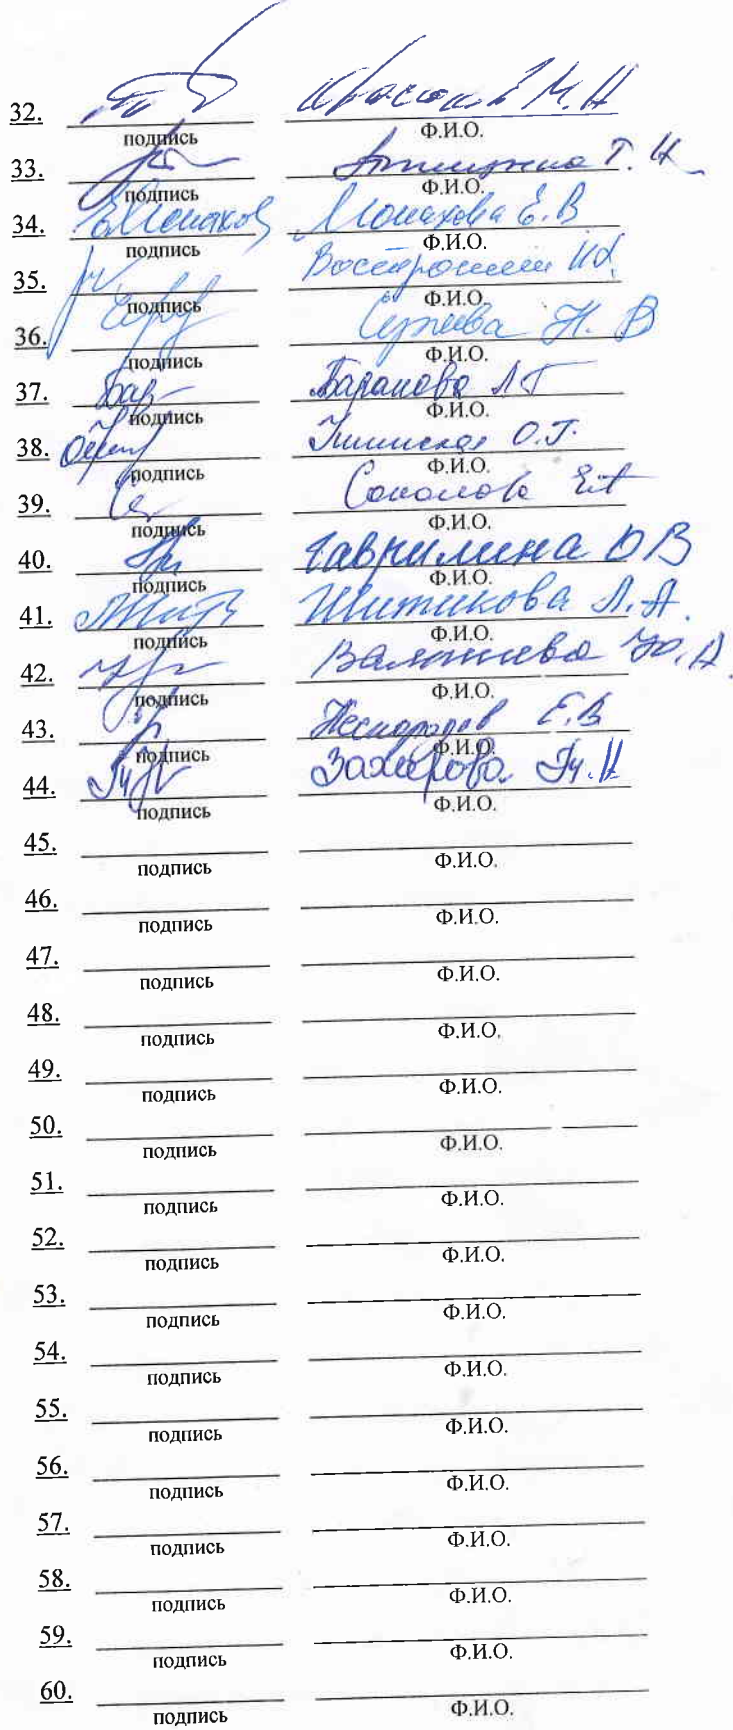 32.
подпись Ф.И.О.
33. Т. И
подпись Ф.И.О.
34. Монахова Е.В
подпись Ф.И.О.
35.
подпись Ф.И.О.
36. Н. В
подпись Ф.И.О.
37. Бар Баранова Л Г
подпись Ф.И.О.
38. О.Г.
подпись Ф.И.О.
39. Соколова
подпись Ф.И.О.
40. Гаврилина О В
подпись Ф.И.О.
41. Шитикова Л.А.
подпись Ф.И.О.
42. Ю.А.
подпись Ф.И.О.
43. Е.В
подпись Ф.И.О.
44. Захарова
подпись Ф.И.О.
45.
подпись Ф.И.О.
46.
подпись Ф.И.О.
47.
подпись Ф.И.О.
48.
подпись Ф.И.О.
49.
подпись Ф.И.О.
50.
подпись Ф.И.О.
51.
подпись Ф.И.О.
52.
подпись Ф.И.О.
53.
подпись Ф.И.О.
54.
подпись Ф.И.О.
55.
подпись Ф.И.О.
56.
подпись Ф.И.О.
57.
подпись Ф.И.О.
58.
подпись Ф.И.О.
59.
подпись Ф.И.О.
60.
подпись Ф.И.О.